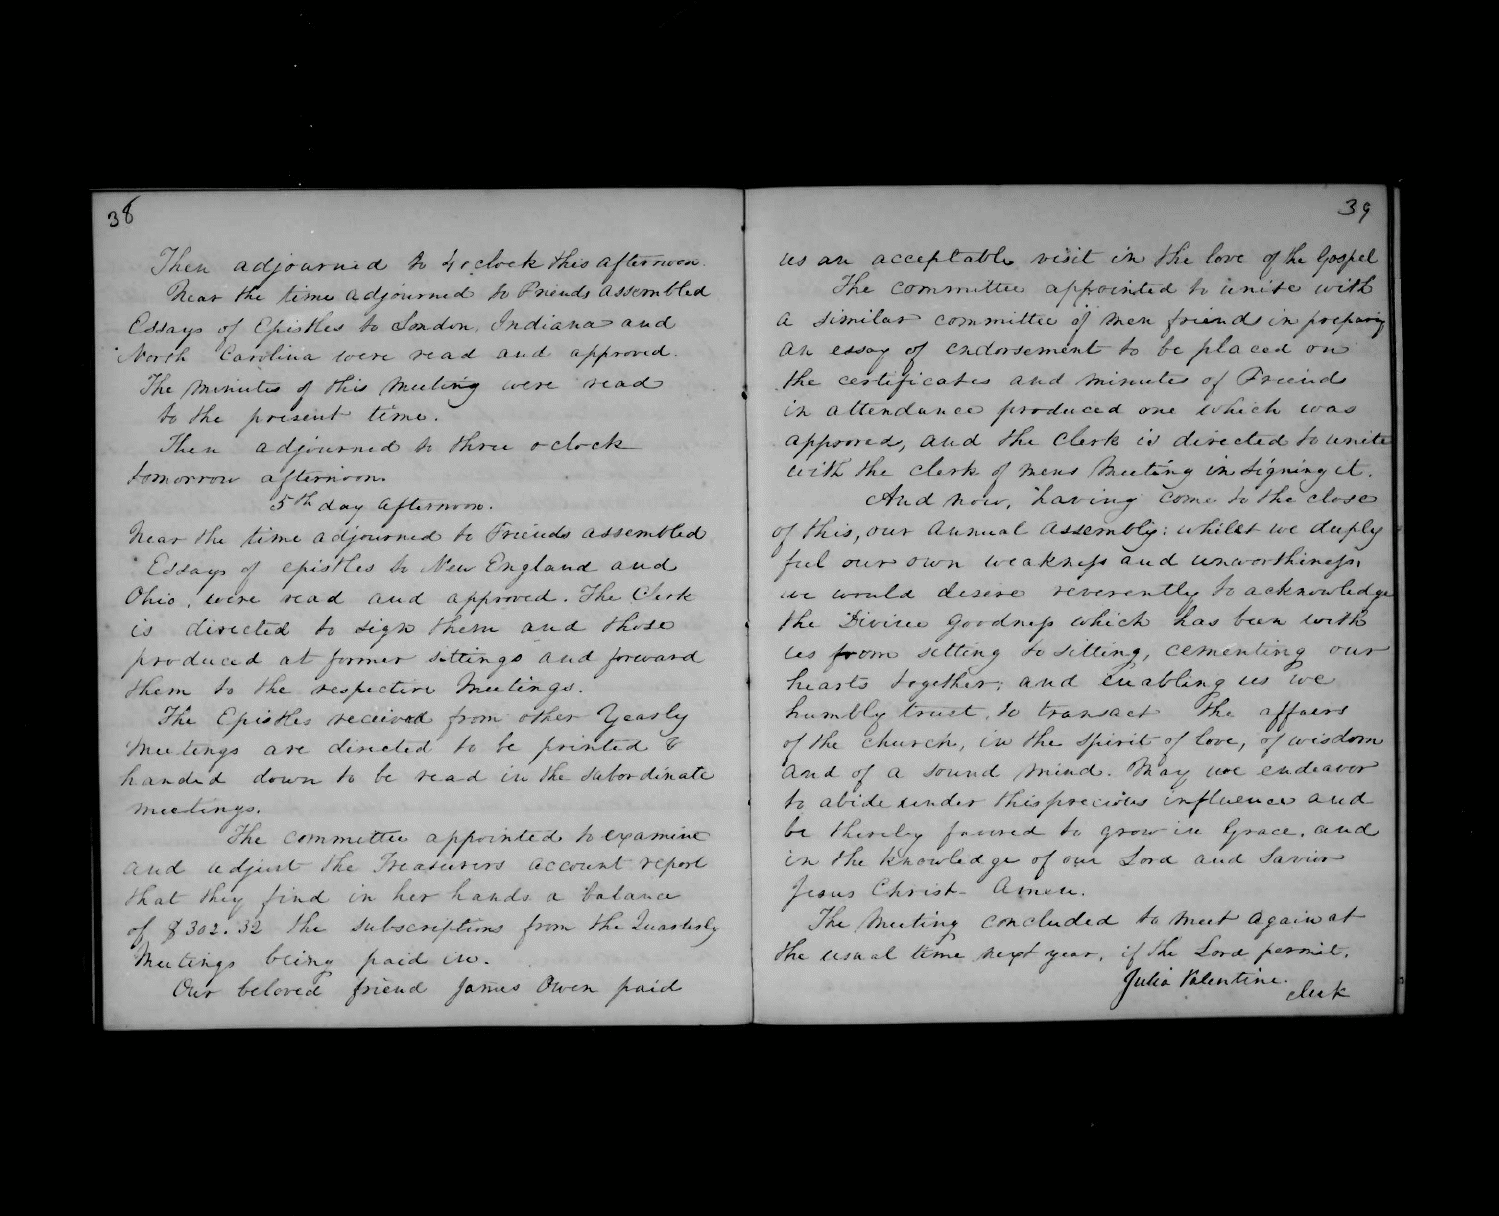 38
Then adjourned to 4 o clock this afternoon.
Near the time adjourned to Friends assembled
Essays of Epistles to London, Indiana and
North Carolina were read and approved.
The minutes of this Meeting were read
to the present time.
Then adjourned to three o clock
tomorrow afternoon.
5th day afternoon.
Near the time adjourned to Friends assembled
Essays of epistles to New England and
Ohio, were read and approved. The Clerk
is directed to sign them and those
produced at former sittings and forward
them to the respective Meetings.
The Epistles received from other Yearly
Meetings are directed to be printed &
handed down to be read in the subordinate
meetings.
The committee appointed to examine
and adjust the Treasurers account report
that they find in her hands a balance
of $302.32 the subscriptions from the Quarterly
Meetings being paid in.
Our beloved friend James Owen paid
39
us an acceptable visit in the love of the Gospel
The committee appointed to unite with
a similar committee of men friends in preparing
an essay of endorsement to be placed on
the certificates and minutes of Friends
in attendance produced one which was
approved, and the Clerk is directed to unite
with the clerk of mens Meeting in signing it.
And now, having come to the close
of this, our annual assembly: whilst we deeply
feel our own weakness and unworthiness,
we would desire reverently to acknowledge
the Divine Goodness which has been with
us from sitting to sitting, cementing our
hearts together; and enabling us we
humbly trust, to transact the affairs
of the church, in the spirit of love, of wisdom
and of a sound mind. May we endeavor
to abide under this precious influence and
be thereby favored to grow in Grace, and
in the knowledge of our Lord and Savior
Jesus Christ- Amen.
The Meeting concluded to meet again at
the usual time next year, if the Lord permit.
Julia Valentine.
clerk